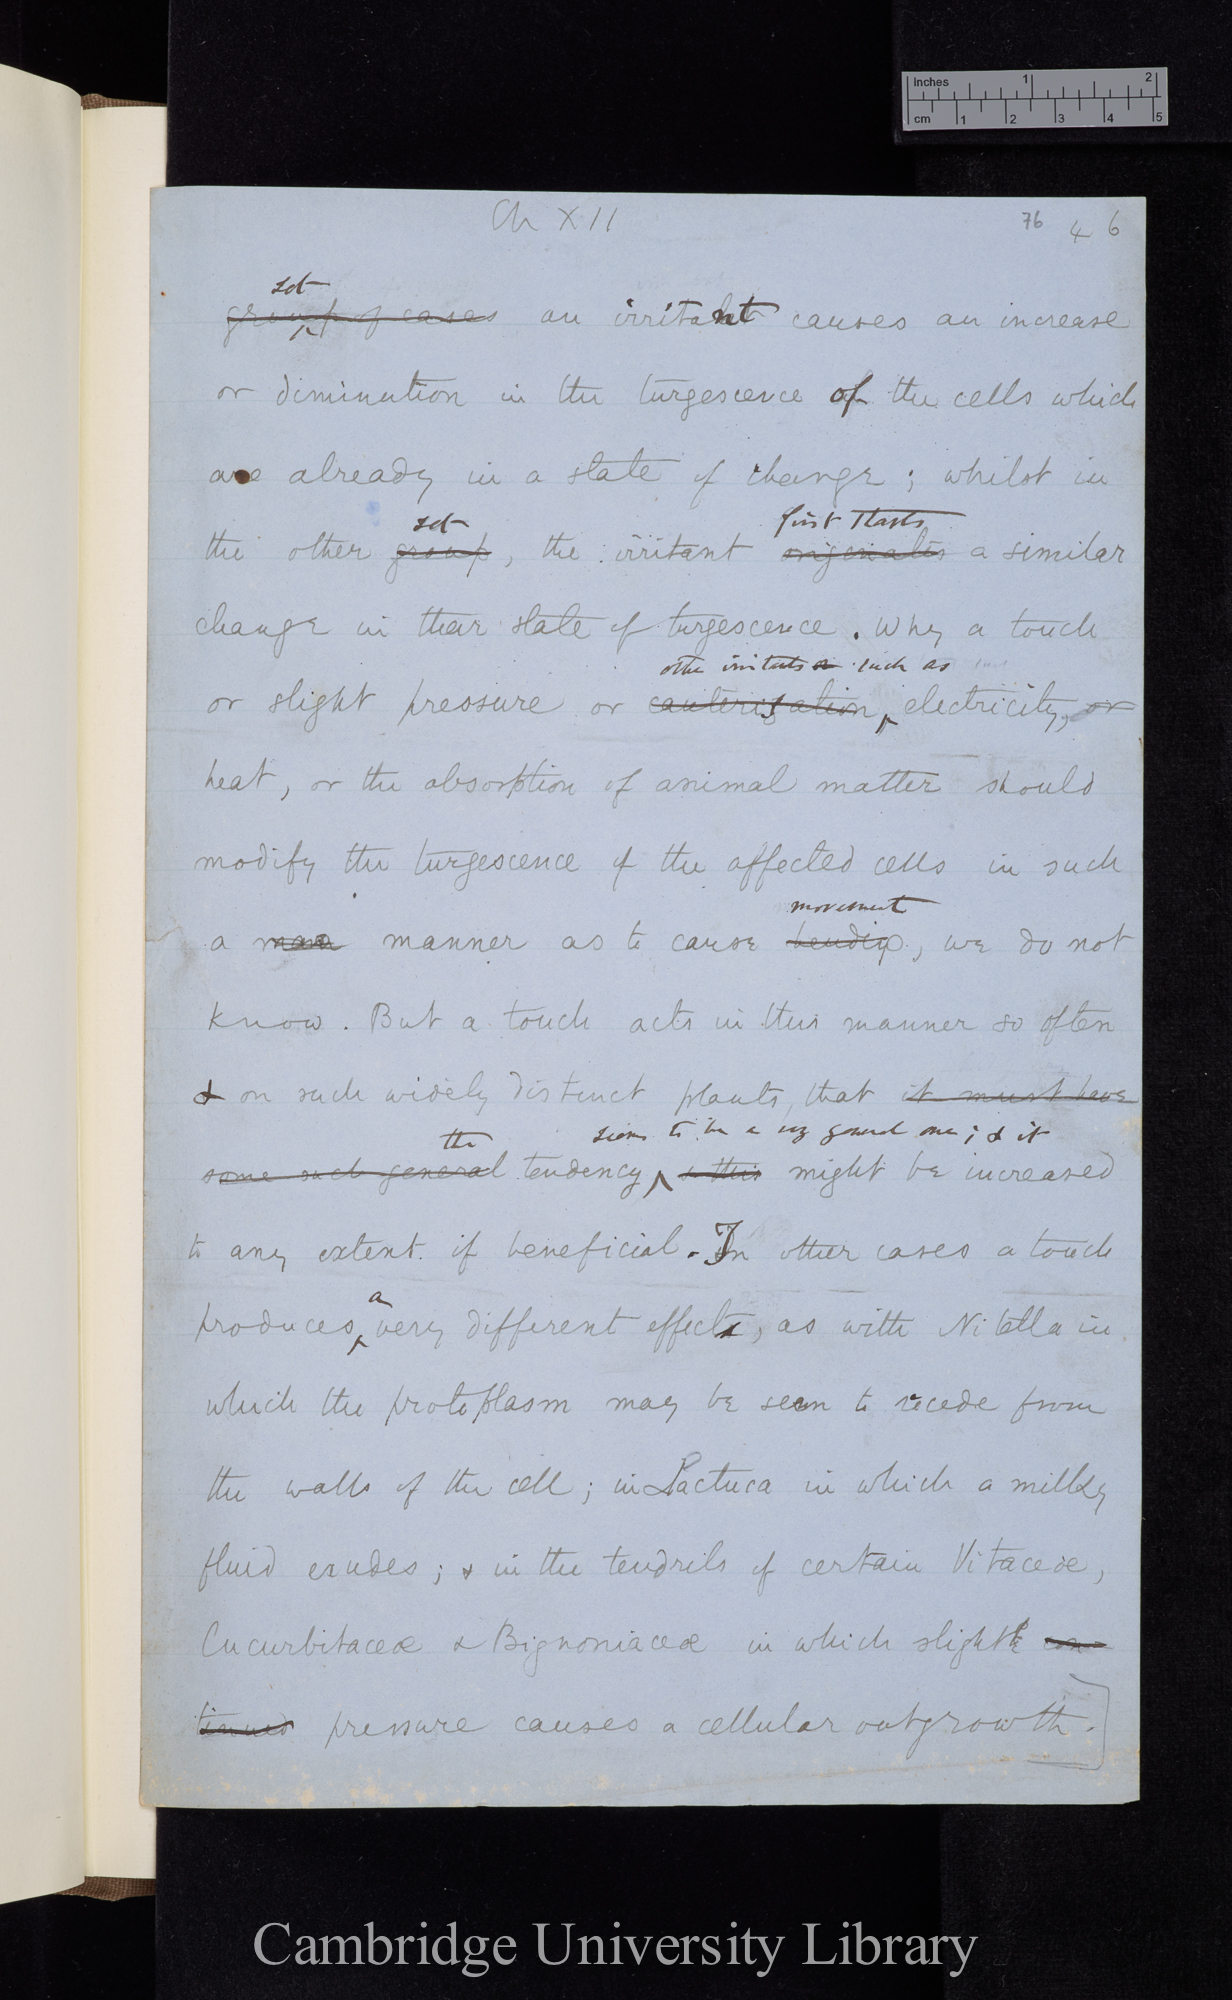 Inches 1 2
cm 1 2 3 4 5
Ch XII 76 46
set
group of cases an irritant causes an increase
or diminution in the turgescence of the cells which
are already in a state of change; whilst in
set first starts
the other group, the irritant originates a similar
change in their state of turgescence. Why a touch
other irritants such as
or slight pressure or cauterisation, electricity, or
heat, or the absorption of animal matter should
modify the turgescence of the affected cells in such
movement
a mann manner as to cause bending, we do not
know. But a touch acts in this manner so often
& on such widely distinct plants, that it must have
the seems to be a very general one; & it
some such general tendency & this might be increased
to any extent if beneficial. In other cases a touch
a
produces very different effects, as with Nitella in
which the protoplasm may be seen to recede from
the walls of the cell; in Lactuca in which a milky
fluid exudes; & in the tendrils of certain Vitaceæ,
Cucurbitaceæ & Bignoniaceæ in which slight con
tinued pressure causes a cellular outgrowth.
Cambridge University Library